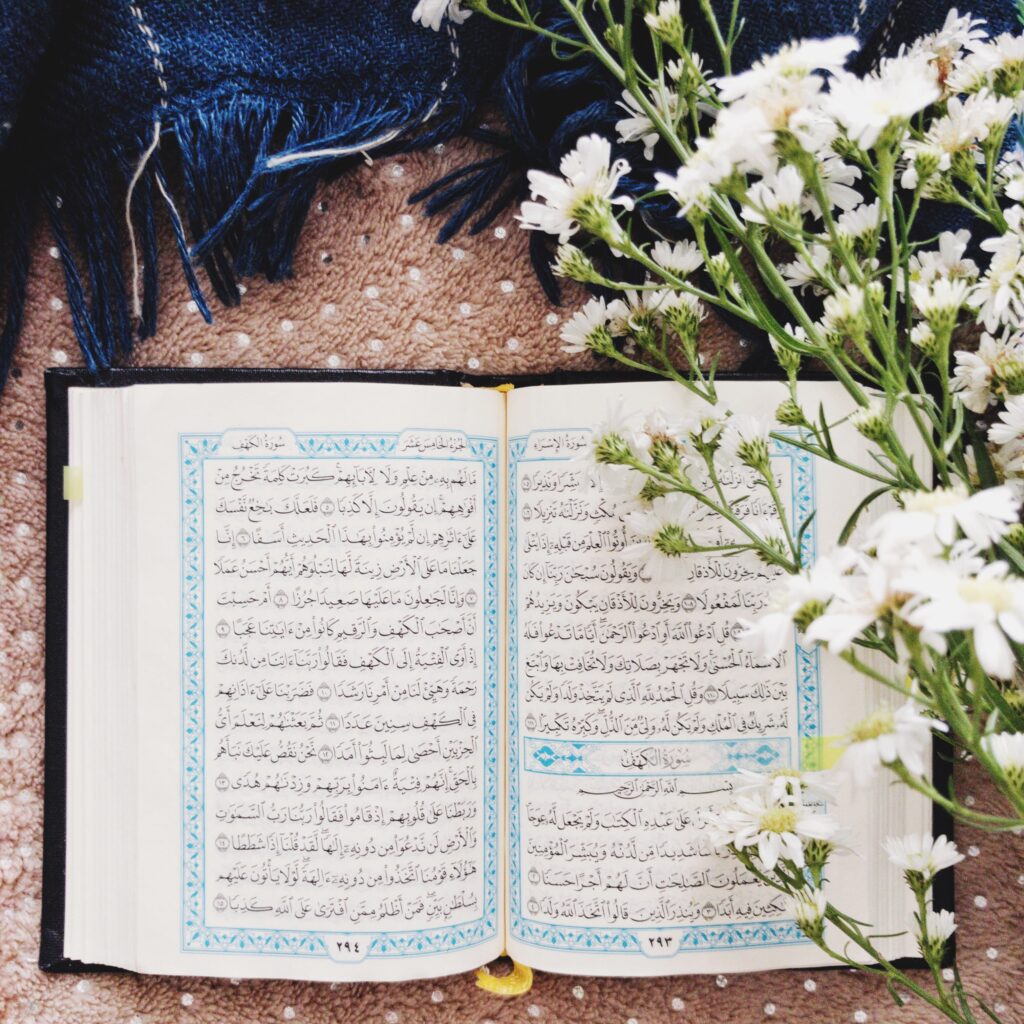 سُورَةُ الإِسْرَاءِ
أَنزَلْنَٰهُ مُبَشِّرًا وَنَذِيرًا ١٠٥
مُكْثٍ وَنَزَّلْنَٰهُ تَنزِيلًا ١٠٦
أُوتُوا۟ ٱلْعِلْمَ مِن قَبْلِهِۦٓ إِذَا يُتْلَىٰ
يَخِرُّونَ لِلْأَذْقَانِ وَيَقُولُونَ سُبْحَٰنَ رَبِّنَآ إِن كَانَ
رَبِّنَا لَمَفْعُولًا ١٠٨ وَيَخِرُّونَ لِلْأَذْقَانِ يَبْكُونَ وَيَزِيدُهُمْ
قُلِ ٱدْعُوا۟ ٱللَّهَ أَوِ ٱدْعُوا۟ ٱلرَّحْمَٰنَ أَيًّا مَّا تَدْعُوا۟ فَلَهُ
ٱلْأَسْمَآءُ ٱلْحُسْنَىٰ وَلَا تَجْهَرْ بِصَلَاتِكَ وَلَا تُخَافِتْ بِهَا وَٱبْتَغِ
بَيْنَ ذَٰلِكَ سَبِيلًا ١١٠ وَقُلِ ٱلْحَمْدُ لِلَّهِ ٱلَّذِى لَمْ يَتَّخِذْ وَلَدًا وَلَمْ يَكُن
لَّهُۥ شَرِيكٌ فِى ٱلْمُلْكِ وَلَمْ يَكُن لَّهُۥ وَلِىٌّ مِّنَ ٱلذُّلِّ وَكَبِّرْهُ تَكْبِيرًۢا ١١١
سُورَةُ الكَهْفِ
بِسْمِ ٱللَّهِ ٱلرَّحْمَٰنِ ٱلرَّحِيمِ
عَلَىٰ عَبْدِهِ ٱلْكِتَٰبَ وَلَمْ يَجْعَل لَّهُۥ عِوَجَا
بَأْسًا شَدِيدًا مِّن لَّدُنْهُ وَيُبَشِّرَ ٱلْمُؤْمِنِينَ
يَعْمَلُونَ ٱلصَّٰلِحَٰتِ أَنَّ لَهُمْ أَجْرًا حَسَنًا ٢
مَّٰكِثِينَ فِيهِ أَبَدًا ٣ وَيُنذِرَ ٱلَّذِينَ قَالُوا۟ ٱتَّخَذَ ٱللَّهُ وَلَدًا ٤
٢٩٣
الجُزْءُ الخَامِسَ عَشَرَ
سُورَةُ الكَهْفِ
مَّا لَهُم بِهِۦ مِنْ عِلْمٍ وَلَا لِءَابَآئِهِمْ كَبُرَتْ كَلِمَةً تَخْرُجُ مِنْ
أَفْوَٰهِهِمْ إِن يَقُولُونَ إِلَّا كَذِبًا ٥ فَلَعَلَّكَ بَٰخِعٌ نَّفْسَكَ
عَلَىٰٓ ءَاثَٰرِهِمْ إِن لَّمْ يُؤْمِنُوا۟ بِهَٰذَا ٱلْحَدِيثِ أَسَفًا ٦ إِنَّا
جَعَلْنَا مَا عَلَى ٱلْأَرْضِ زِينَةً لَّهَا لِنَبْلُوَهُمْ أَيُّهُمْ أَحْسَنُ عَمَلًا
٧ وَإِنَّا لَجَٰعِلُونَ مَا عَلَيْهَا صَعِيدًا جُرُزًا ٨ أَمْ حَسِبْتَ
أَنَّ أَصْحَٰبَ ٱلْكَهْفِ وَٱلرَّقِيمِ كَانُوا۟ مِنْ ءَايَٰتِنَا عَجَبًا ٩
إِذْ أَوَى ٱلْفِتْيَةُ إِلَى ٱلْكَهْفِ فَقَالُوا۟ رَبَّنَآ ءَاتِنَا مِن لَّدُنكَ
رَحْمَةً وَهَيِّئْ لَنَا مِنْ أَمْرِنَا رَشَدًا ١٠ فَضَرَبْنَا عَلَىٰٓ ءَاذَانِهِمْ
فِى ٱلْكَهْفِ سِنِينَ عَدَدًا ١١ ثُمَّ بَعَثْنَٰهُمْ لِنَعْلَمَ أَىُّ
ٱلْحِزْبَيْنِ أَحْصَىٰ لِمَا لَبِثُوٓا۟ أَمَدًا ١٢ نَّحْنُ نَقُصُّ عَلَيْكَ نَبَأَهُم
بِٱلْحَقِّ إِنَّهُمْ فِتْيَةٌ ءَامَنُوا۟ بِرَبِّهِمْ وَزِدْنَٰهُمْ هُدًى ١٣
وَرَبَطْنَا عَلَىٰ قُلُوبِهِمْ إِذْ قَامُوا۟ فَقَالُوا۟ رَبُّنَا رَبُّ ٱلسَّمَٰوَٰتِ
وَٱلْأَرْضِ لَن نَّدْعُوَا۟ مِن دُونِهِۦٓ إِلَٰهًا لَّقَدْ قُلْنَآ إِذًا شَطَطًا ١٤
هَٰٓؤُلَآءِ قَوْمُنَا ٱتَّخَذُوا۟ مِن دُونِهِۦٓ ءَالِهَةً لَّوْلَا يَأْتُونَ عَلَيْهِم
بِسُلْطَٰنٍۭ بَيِّنٍ فَمَنْ أَظْلَمُ مِمَّنِ ٱفْتَرَىٰ عَلَى ٱللَّهِ كَذِبًا ١٥
٢٩٤